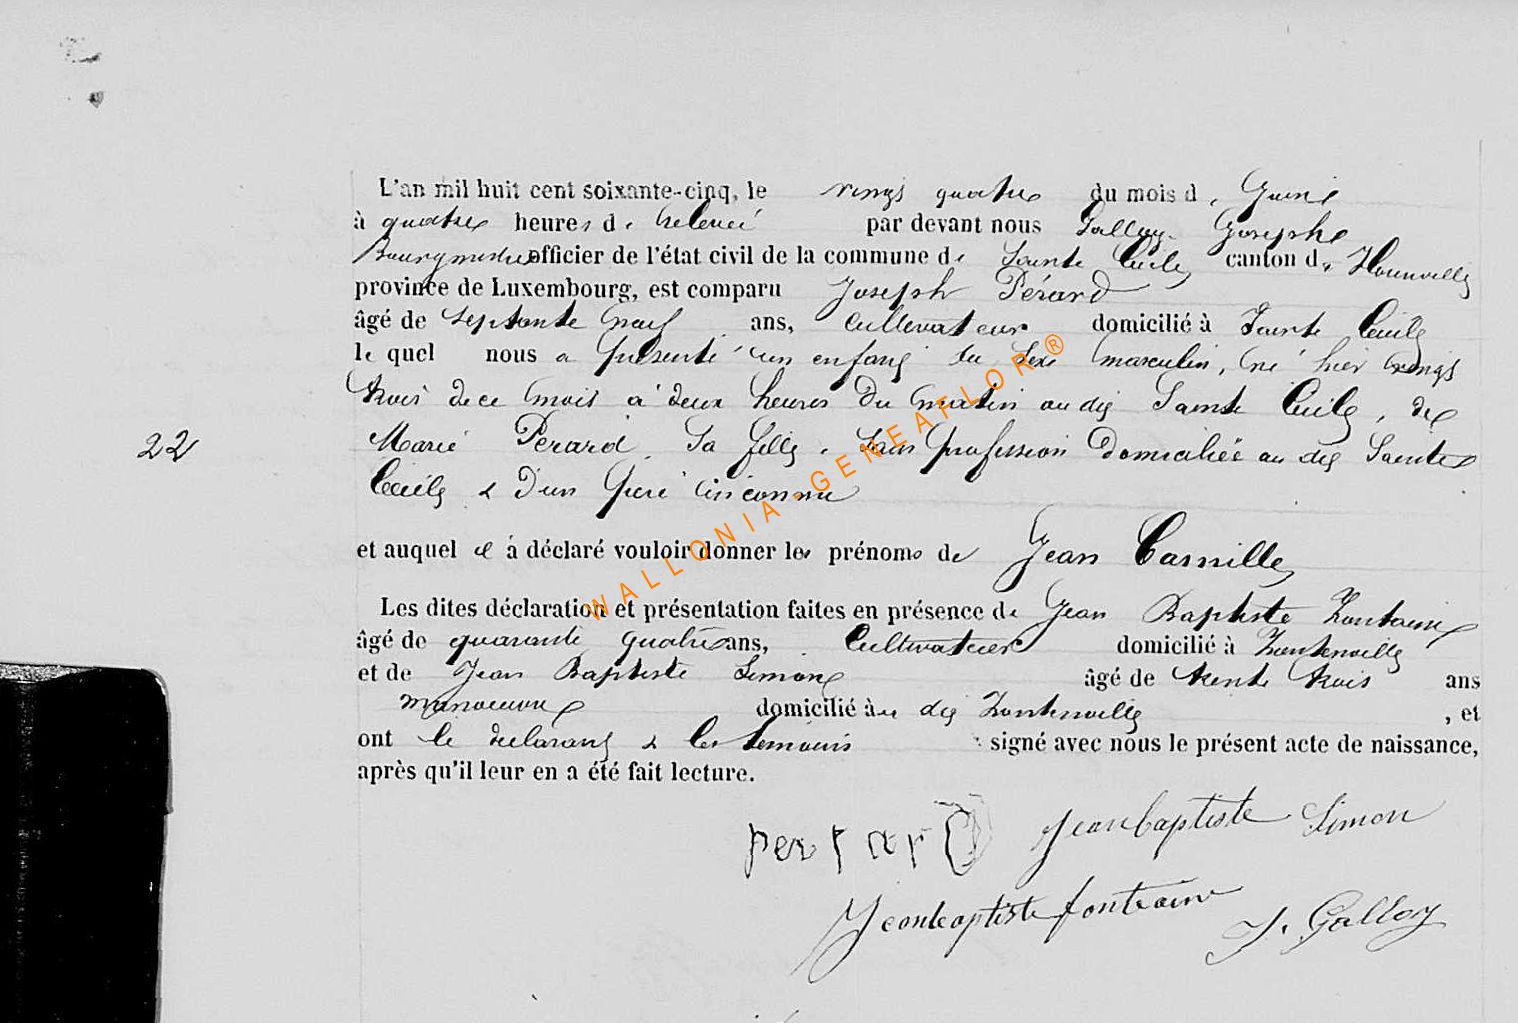 L'an mil huit cent soixante-cinq, le vingt quatre du mois de Juin
à quatre heures de relevée par devant nous Galloy Joseph
Bourgmestre officier de l'état civil de la commune de Sainte Cécile canton de
province de Luxembourg, est comparu Joseph Pérard
âgé de septante neuf ans, cultivateur domicilié à Sainte Cécile
le quel nous a présenté un enfant du sexe masculin, né hier vingt
trois de ce mois à deux heures du matin au dit Sainte Cécile, de
22 Marie Perard, sa fille, sans profession domiciliée au dit Sainte
Cécile & d'un père inconnu
et auquel il a déclaré vouloir donner les prénoms de Jean Camille
Les dites déclaration et présentation faites en présence de Jean Baptiste Fontaine
âgé de quarante quatre ans, Cultivateur domicilié à Fontenoille
et de Jean Baptiste Simon âgé de trente trois ans
manoeuvre domicilié au dit Fontenoille, et
ont le déclarant & les témoins signé avec nous le présent acte de naissance,
après qu'il leur en a été fait lecture.
Jeanbaptiste Simon
Jeanbaptiste fontaine J. Galloy
WALLONIA-GENEAFLOR®